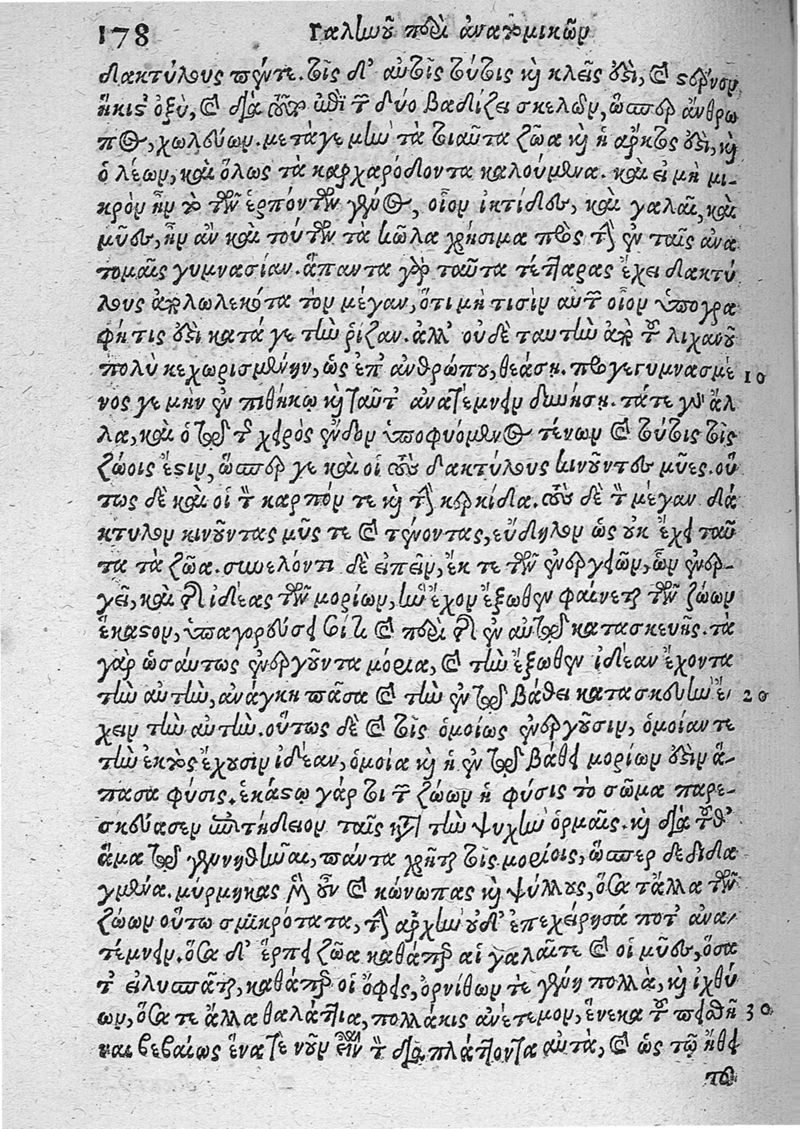 178 Γαληνοῦ περὶ ἀνατομικῶν
δακτύλους πέντε. τοῖς δ' αὐτοῖς τούτοις καὶ κλεῖς ἐστι, καὶ στέρνον
ἥκιστ' ὀξὺ, καὶ διὰ τοῦτο ἐπὶ τῶν δύο βαδίζει σκελῶν, ὥσπερ ἄνθρω
πος, χωλεύων. μετὰ γε μὴν τὰ τοιαῦτα ζῶα καὶ ἡ ἄρκτος ἐστὶ, καὶ
ὁ λέων, καὶ ὅλως τὰ καρχαρόδοντα καλούμενα. καὶ εἰ μὴ μι-
κρὸν ἦν τὸ τῶν ἑρπόντων γένος, οἷον ἰκτίδες, καὶ γαλαῖ, καὶ
μῦες, ἦν ἂν καὶ τούτων τὰ κῶλα χρήσιμα πρὸς τὴν ἐν ταῖς ἀνα
τομαῖς γυμνασίαν. ἅπαντα γὰρ ταῦτα τέτταρας ἔχει δακτύ
λους ἀπολωλεκότα τὸν μέγαν, ὅτι μὴ τισὶν αὐτῶν οἷον ὑπογρα
φή τις ἐστὶ κατά γε τὴν ῥίζαν. ἀλλ' οὐδὲ ταύτην ἀπὸ τοῦ λιχανοῦ
πολὺ κεχωρισμένην, ὡς ἐπ' ἀνθρώπου, θεάσῃ. προγεγυμνασμέ 10
νος γε μὴν ἐν πιθήκῳ καὶ ταῦτ' ἀνατέμνειν δυνήσῃ. τά τε γὰρ ἄλ
λα, καὶ ὁ τῷ τῆς χειρὸς ἔνδον ὑποφυόμενος τένων καὶ τούτοις τοῖς
ζώοις ἐστὶν, ὥσπερ γε καὶ οἱ τοὺς δακτύλους κινοῦντες μῦες. οὕ
τως δὲ καὶ οἱ τὸν καρπόν τε καὶ τὴν κερκίδα. τοὺς δὲ τὸν μέγαν δά
κτυλον κινοῦντας μῦς τε καὶ τένοντας, εὔδηλον ὡς οὐκ ἔχει ταῦ
τα τὰ ζῶα. συνελόντι δὲ εἰπεῖν, ἔκ τε τῶν ἐνεργειῶν, ὧν ἐνερ-
γεῖ, καὶ τῆς ἰδέας τῶν μορίων, ἣν ἔχον ἔξωθεν φαίνεται τῶν ζώων
ἕκαστον, ὑπαγορεύσει καὶ περὶ τῆς ἐν αὐτῷ κατασκευῆς. τὰ
γὰρ ὡσαύτως ἐνεργοῦντα μόρια, καὶ τὴν ἔξωθεν ἰδέαν ἔχοντα
τὴν αὐτὴν, ἀνάγκη πᾶσα καὶ τὴν ἐν τῷ βάθει κατασκευὴν ἔ- 20
χειν τὴν αὐτήν. οὕτως δὲ καὶ τοῖς ὁμοίως ἐνεργοῦσιν, ὁμοίαν τε
τὴν ἐκτὸς ἔχουσιν ἰδέαν, ὁμοία καὶ ἡ ἐν τῷ βάθει μορίων ἐστὶν ἅ-
πασα φύσις. ἑκάστῳ γάρ τοι τῶν ζώων ἡ φύσις τὸ σῶμα παρε-
σκεύασεν ἐπιτήδειον ταῖς κατὰ τὴν ψυχὴν ὁρμαῖς. καὶ διὰ τοῦθ'
ἅμα τῷ γεννηθῆναι, πάντα χρῆται τοῖς μορίοις, ὥσπερ δεδιδα
γμένα. μύρμηκας μὲν οὖν καὶ κώνωπας καὶ ψύλλους, ὅσα τ' ἄλλα τῶν
ζώων οὕτω σμικρότατα, τὴν ἀρχὴν οὐδ' ἐπεχείρησά ποτ' ἀνα-
τέμνειν. ὅσα δ' ἕρπει ζῶα καθάπερ αἱ γαλαῖ τε καὶ οἱ μῦες, ὅσα
τ' εἰλυσπᾶται, καθάπερ οἱ ὄφεις, ὀρνίθων τε γένη πολλὰ, καὶ ἰχθύ
ων, ὅσα τε ἄλλα θαλάττια, πολλάκις ἀνέτεμον, ἕνεκα τοῦ πεισθῆ 30
ναι βεβαίως ἕνα τε νοῦν εἶναι τὸν διαπλάττοντα αὐτὰ, καὶ ὡς τῷ ἤθει
τοῦ